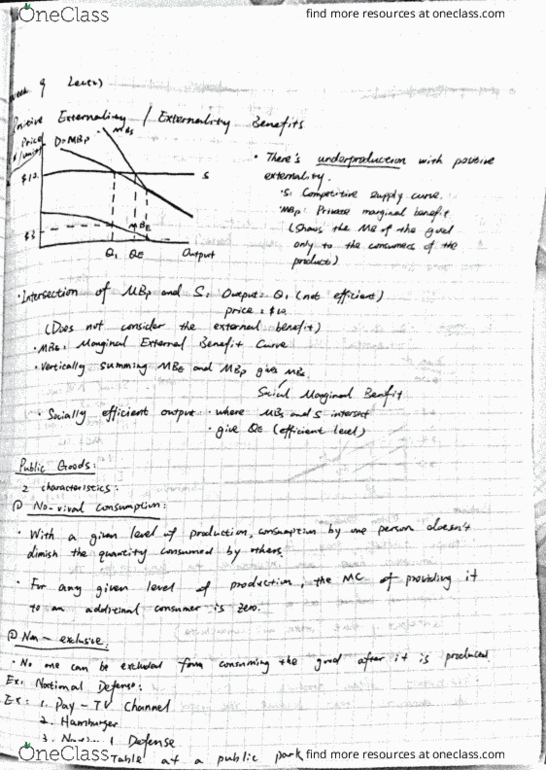 OneClass
find more resources at oneclass.com
week 9 Lecture
Positive Externality / Externality Benefits
Price
$/unit
D=MBp
MBs
$12
S
$3
MBE
Q1 QE Output
• There's underproduction with positive
externality.
S: Competitive supply curve.
MBp: Private marginal benefit
(Shows the MB of the good
only to the consumers of the
product)
• Intersection of MBp and S: Output: Q1 (not efficient)
price: $12
(Does not consider the external benefit)
• MBE: Marginal External Benefit Curve
• Vertically summing MBE and MBp gives MBs
Social Marginal Benfit
• Socially efficient output: • where MBs and S intersect
• give QE (efficient level)
Public Goods:
2 characteristics:
① No-rival consumption:
• With a given level of production, consumption by one person doesn't
dimish the quantity consumed by others.
• For any given level of production, the MC of providing it
to an additional consumer is zero.
② Non-exclusive.
• No one can be excluded form consuming the good after it is produced
Ex: National Defense:
Ex: 1. Pay-TV Channel
2. Hamburger
3. Defense
Table at a public park
OneClass
find more resources at oneclass.com